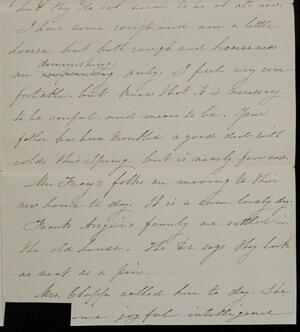 but they do not seem to be at all now.
I have some cough and am a little
hoarse, but both cough and hoarseness
diminishing
are daily. I feel very com-
fortable, but know that it is necessary
to be careful, and mean to be. Your
father has been troubled a good deal with
colds this Spring, but is nearly free now.
Mr. Frary's folks are moving to their
new home to day. It is a lovely day.
Frank Angier's family are settled in
the old house. The Dr. says they look
as neat as a pin.
Mrs. Clapp called here to day. She
some joyful intelligence